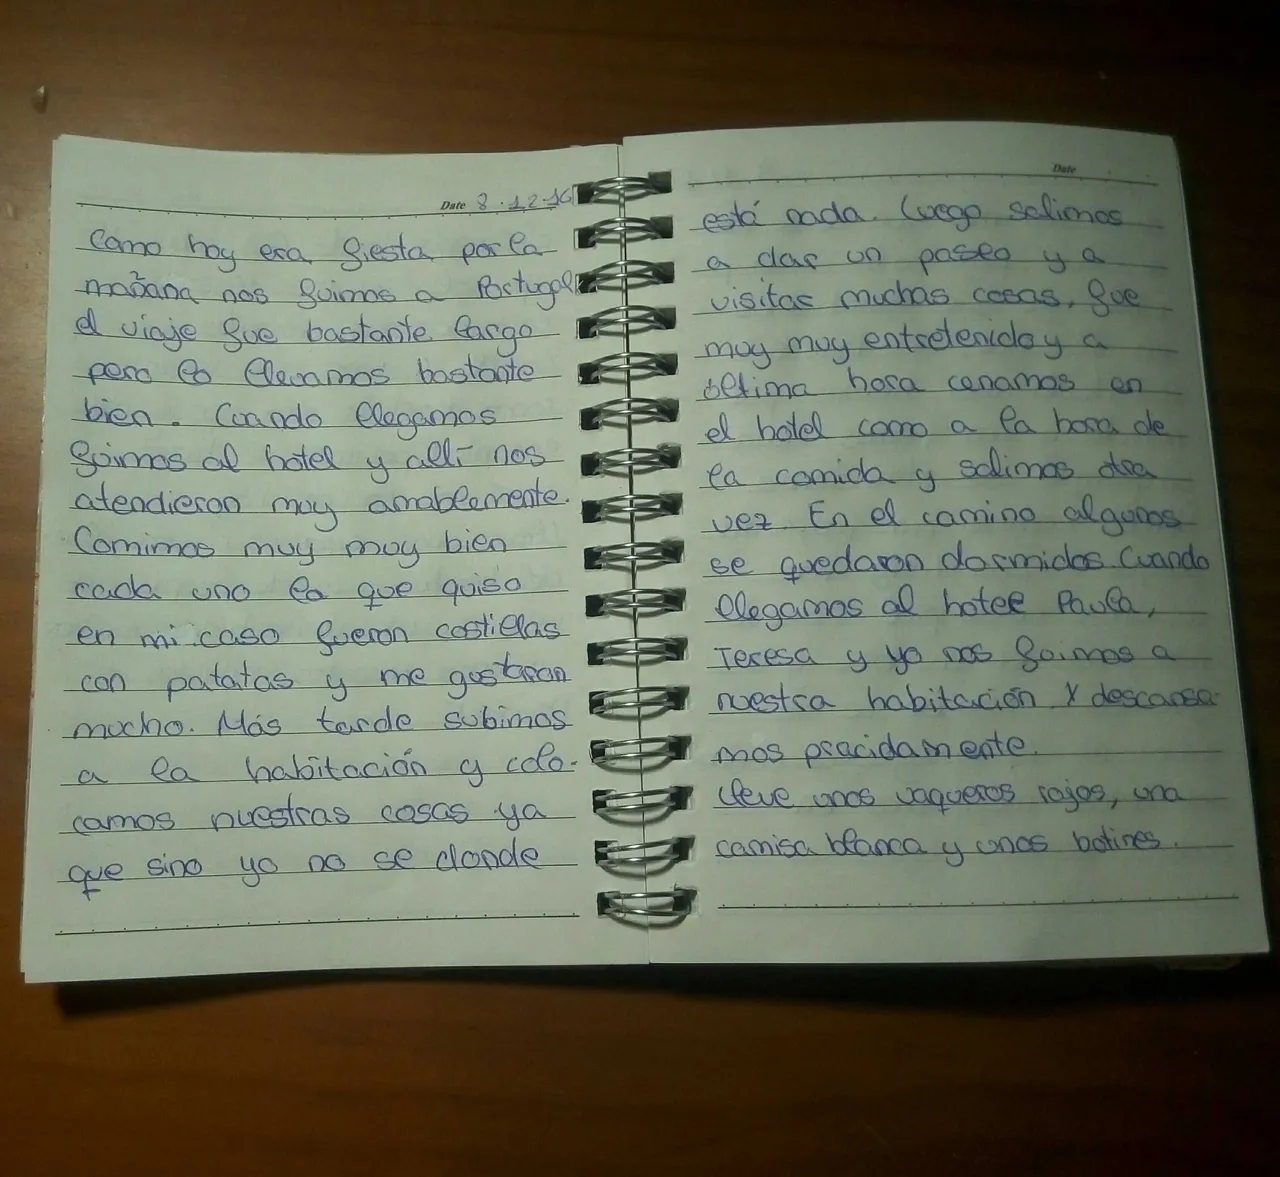 Date 8.12.16
Como hoy era fiesta por la
mañana nos fuimos a Portugal
el viaje fue bastante largo
pero lo llevamos bastante
bien. Cuando llegamos
fuimos al hotel y allí nos
atendieron muy amablemente.
Comimos muy muy bien
cada uno lo que quiso
en mi caso fueron costillas
con patatas y me gustaron
mucho. Más tarde subimos
a la habitación y colo-
camos nuestras cosas ya
que sino yo no se donde
Date
está nada. Luego salimos
a dar un paseo y a
visitar muchas cosas, fue
muy muy entretenido y a
última hora cenamos en
el hotel como a la hora de
la comida y salimos otra
vez. En el camino algunos
se quedaron dormidos. Cuando
llegamos al hotel Paula,
Teresa y yo nos fuimos a
nuestra habitación y descansa-
mos placidamente.
Lleve unos vaqueros rojos, una
camisa blanca y unos botines.